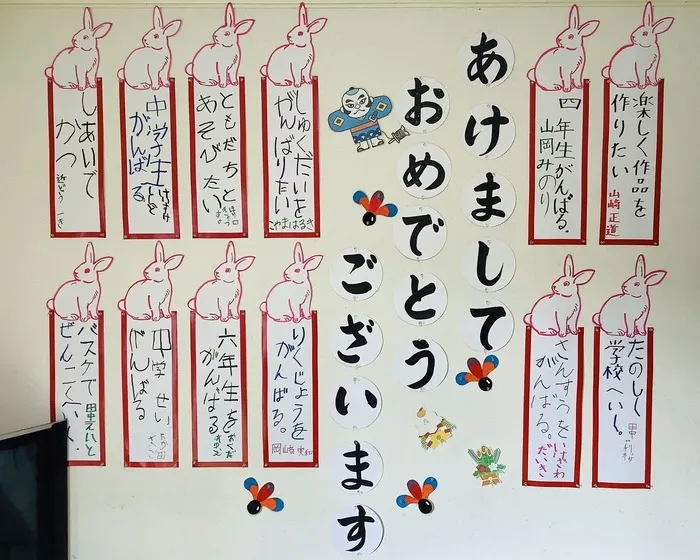 あけまして
おめでとう
ございます
楽しく作品を
作りたい
山崎正道
四年生がんばる。
山岡みのり
しゅくだいを
がんばりたい
こやまはるき
ともだちと
あそびたい
中学生
がんばる
しあいで
かつ
たのしく
学校へいく。
さんすうを
がんばる。
いさわ
だいき
りくじょうを
がんばる。
六年生を
がんばる
おくだ
中学せい
がんばる
バスケで
田中えいと